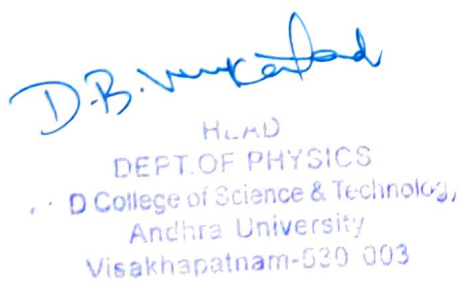 D.B.
HEAD
DEPT.OF PHYSICS
D College of Science & Technology,
Andhra University
Visakhapatnam-530 003